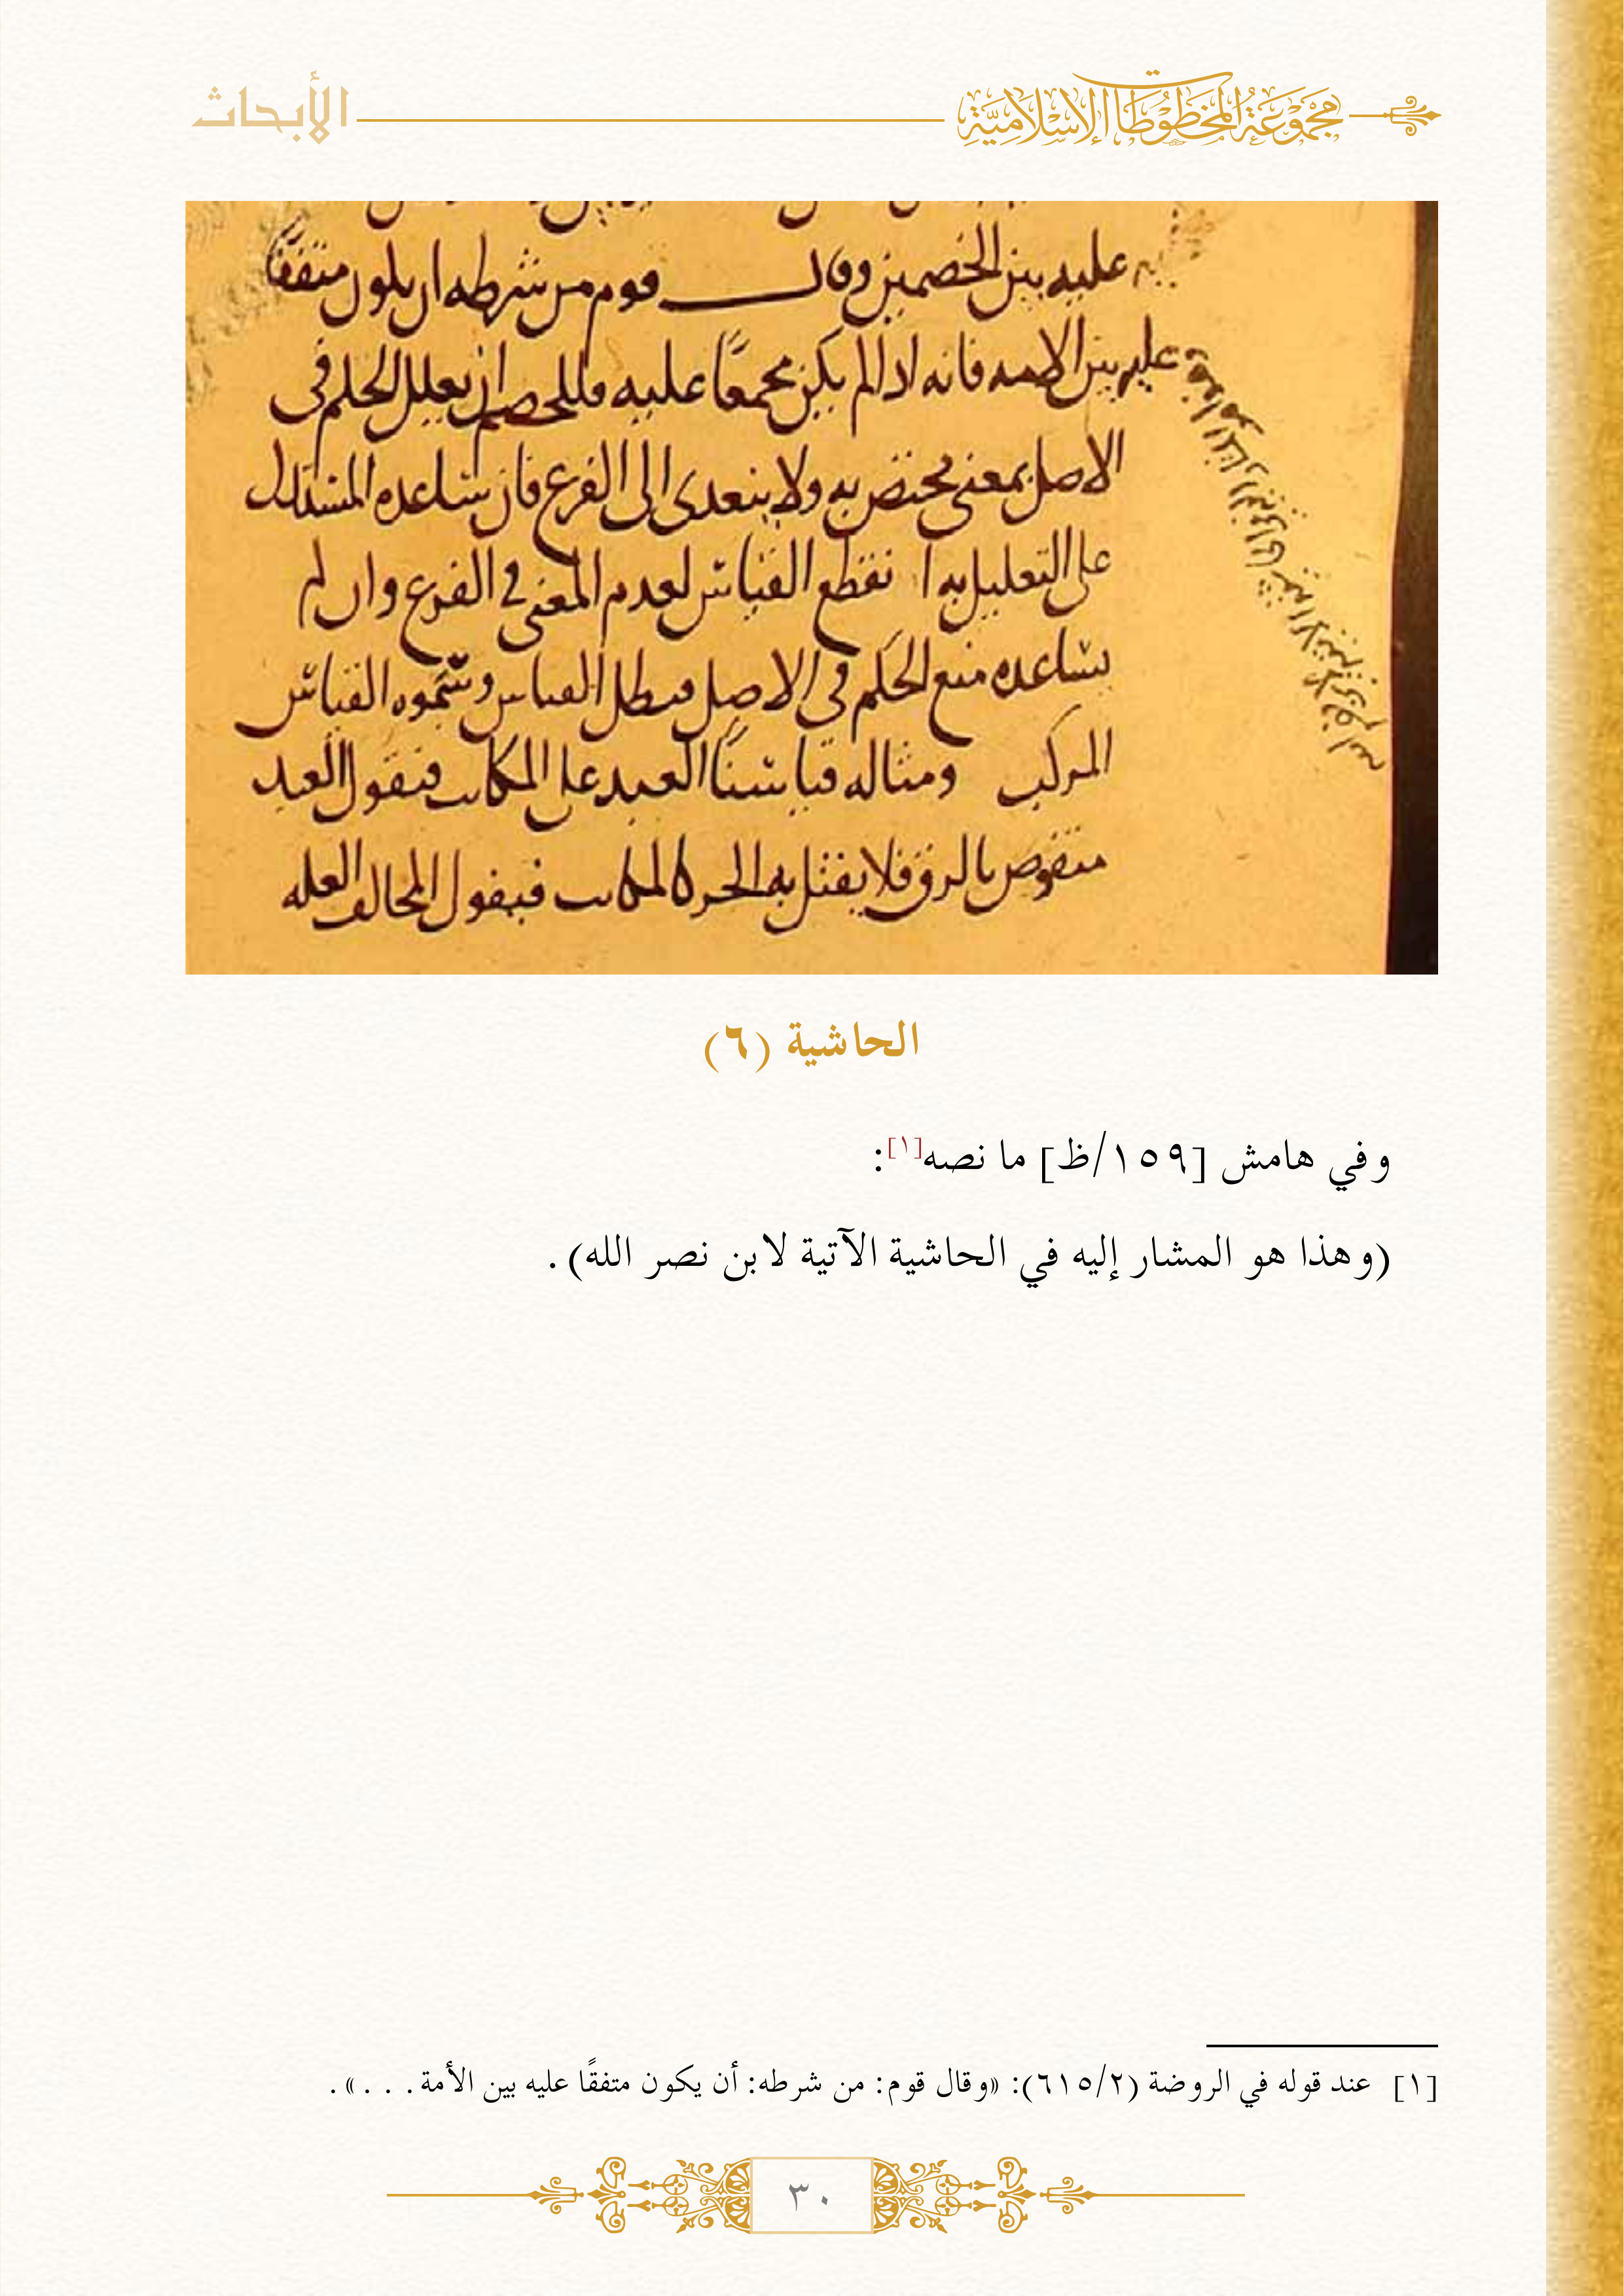 مجموعة المخطوطات الإسلامية
الأبحاث
عليه بين الخصمين وقال قوم من شرطه ان يكون متفقًا
عليه بين الامه فانه اذا لم يكن مجمعًا عليه فللخصم ان يعلل الحكم في
الاصل بمعنى مختص به ولا يتعدى الى الفرع فان ساعده المستدل
على التعليل به انقطع القياس لعدم المعنى في الفرع وان لم
يساعده منع الحكم في الاصل فبطل القياس وسموه القياس
المركب ومثاله قياسنا العبد على المكاتب فنقول العبد
منقوص بالرق فلا يقتل به الحر كالمكاتب فيقول المخالف العله
الحاشية (٦)
وفي هامش [١٥٩/ظ] ما نصه[١]:
(وهذا هو المشار إليه في الحاشية الآتية لابن نصر الله).
[١] عند قوله في الروضة (٦١٥/٢): «وقال قوم: من شرطه: أن يكون متفقًا عليه بين الأمة. . . .».
٣٠